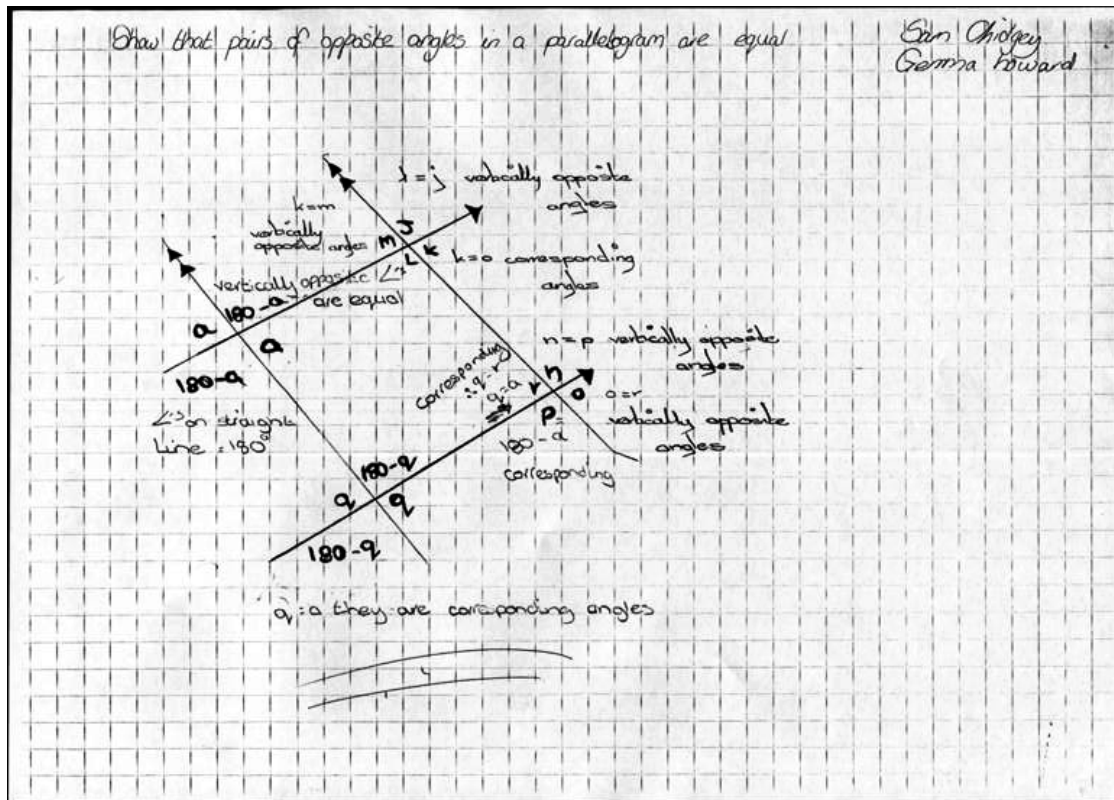 Show that pairs of opposite angles in a parallelogram are equal
Sam Chidgey
Gemma Howard
l = j vertically opposite
angles
k=m
vertically
opposite angles
J
m
L
k
k=o corresponding
angles
vertically opposite
are equal
a
180-a
a
180-a
on straight
Line = 180°
corresponding
∴ q=r
q=a
n = p vertically opposite
angles
r
n
o
p=
180-a
corresponding
o=r
vertically opposite
angles
180-q
q
q
180-q
q = a they are corresponding angles